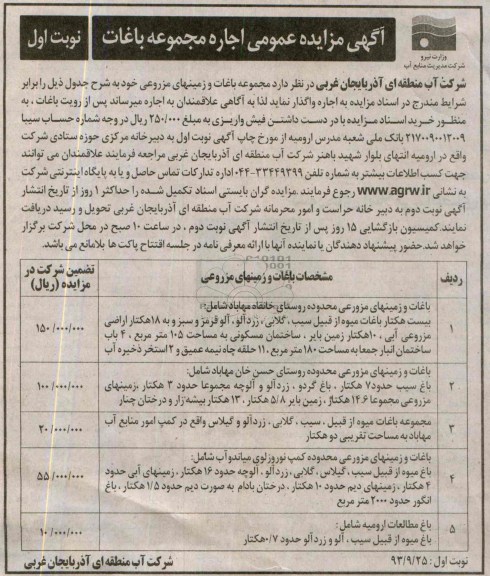 وزارت نیرو
شرکت مدیریت منابع آب
آگهی مزایده عمومی اجاره مجموعه باغات
نوبت اول
شرکت آب منطقه ای آذربایجان غربی در نظر دارد مجموعه باغات و زمینهای مزروعی خود به شرح جدول ذیل را برابر
شرایط مندرج در اسناد مزایده به اجاره واگذار نماید لذا به آگاهی علاقمندان به اجاره میرساند پس از رویت باغات ، به
منظور خرید اسناد مزایده با در دست داشتن فیش واریزی به مبلغ ۲۵۰/۰۰۰ ریال در وجه شماره حساب سیبا
۲۱۷۰۰۹۰۰۱۳۰۰۹ بانک ملی شعبه مدرس ارومیه از مورخ چاپ آگهی نوبت اول به دبیرخانه مرکزی حوزه ستادی شرکت
واقع در ارومیه انتهای بلوار شهید باهنر شرکت آب منطقه ای آذربایجان غربی مراجعه فرمایند علاقمندان می توانند
جهت کسب اطلاعات بیشتر به شماره تلفن ۳۳۴۴۹۳۹۹-۰۴۴ اداره تدارکات تماس حاصل و یا به پایگاه اینترنتی شرکت
به نشانی www.agrw.ir رجوع فرمایند .مزایده گران بایستی اسناد تکمیل شده را حداکثر ۱۰ روز از تاریخ انتشار
آگهی نوبت دوم به دبیر خانه حراست و امور محرمانه شرکت آب منطقه ای آذربایجان غربی تحویل و رسید دریافت
نمایند.کمیسیون بازگشایی ۱۵ روز پس از تاریخ انتشار آگهی نوبت دوم ، در ساعت ۱۰ صبح در محل شرکت برگزار
خواهد شد.حضور پیشنهاد دهندگان یا نماینده آنها با ارائه معرفی نامه در جلسه افتتاح پاکت ها بلامانع می باشد.
ردیف
مشخصات باغات و زمینهای مزروعی
تضمین شرکت در
مزایده (ریال)
۱
باغات و زمینهای مزروعی محدوده روستای خانقاه مهاباد شامل:
بیست هکتار باغات میوه از قبیل سیب ، گلابی ، زردآلو ، آلو قرمز و سبز و به ۱۸هکتار اراضی
مزروعی آبی ، ۱۰هکتار زمین بایر ، ساختمان مسکونی به مساحت ۱۰۵ متر مربع ، ۴ باب
ساختمان انبار جمعا به مساحت ۱۸۰ متر مربع ، ۱۱ حلقه چاه نیمه عمیق و ۲ استخر ذخیره آب
۱۵۰/۰۰۰/۰۰۰
۲
باغات و زمینهای مزروعی محدوده روستای حسن خان مهاباد شامل:
باغ سیب حدود ۷ هکتار ، باغ گردو ، زردآلو و آلوچه مجموعا حدود ۳ هکتار ،زمینهای
مزروعی مجموعا ۱۴.۶ هکتار ، زمین بایر ۵/۸ هکتار ، ۱۳ هکتار بیشه زار و درختان چنار
۱۰۰/۰۰۰/۰۰۰
۳
مجموعه باغات میوه از قبیل ، سیب ، گلابی ، زردآلو و گیلاس واقع در کمپ امور منابع آب
مهاباد به مساحت تقریبی دو هکتار
۲۰/۰۰۰/۰۰۰
۴
باغات و زمینهای مزروعی محدوده کمپ نوروزلوی میاندوآب شامل:
باغ میوه از قبیل سیب ، گیلاس ، گلابی ، زردآلو ، آلوچه حدود ۱۶ هکتار ، زمینهای آبی حدود
۴ هکتار ، زمینهای دیم حدود ۱۰ هکتار . درختان بادام به صورت دیم حدود ۱/۵ هکتار ، باغ
انگور حدود ۲۰۰۰ متر مربع
۵۵/۰۰۰/۰۰۰
۵
باغ مطالعات ارومیه شامل:
باغ میوه از قبیل سیب ، آلو و زردآلو حدود ۰/۷هکتار
۱۰/۰۰۰/۰۰۰
نوبت اول : ۹۳/۹/۲۵
شرکت آب منطقه ای آذربایجان غربی